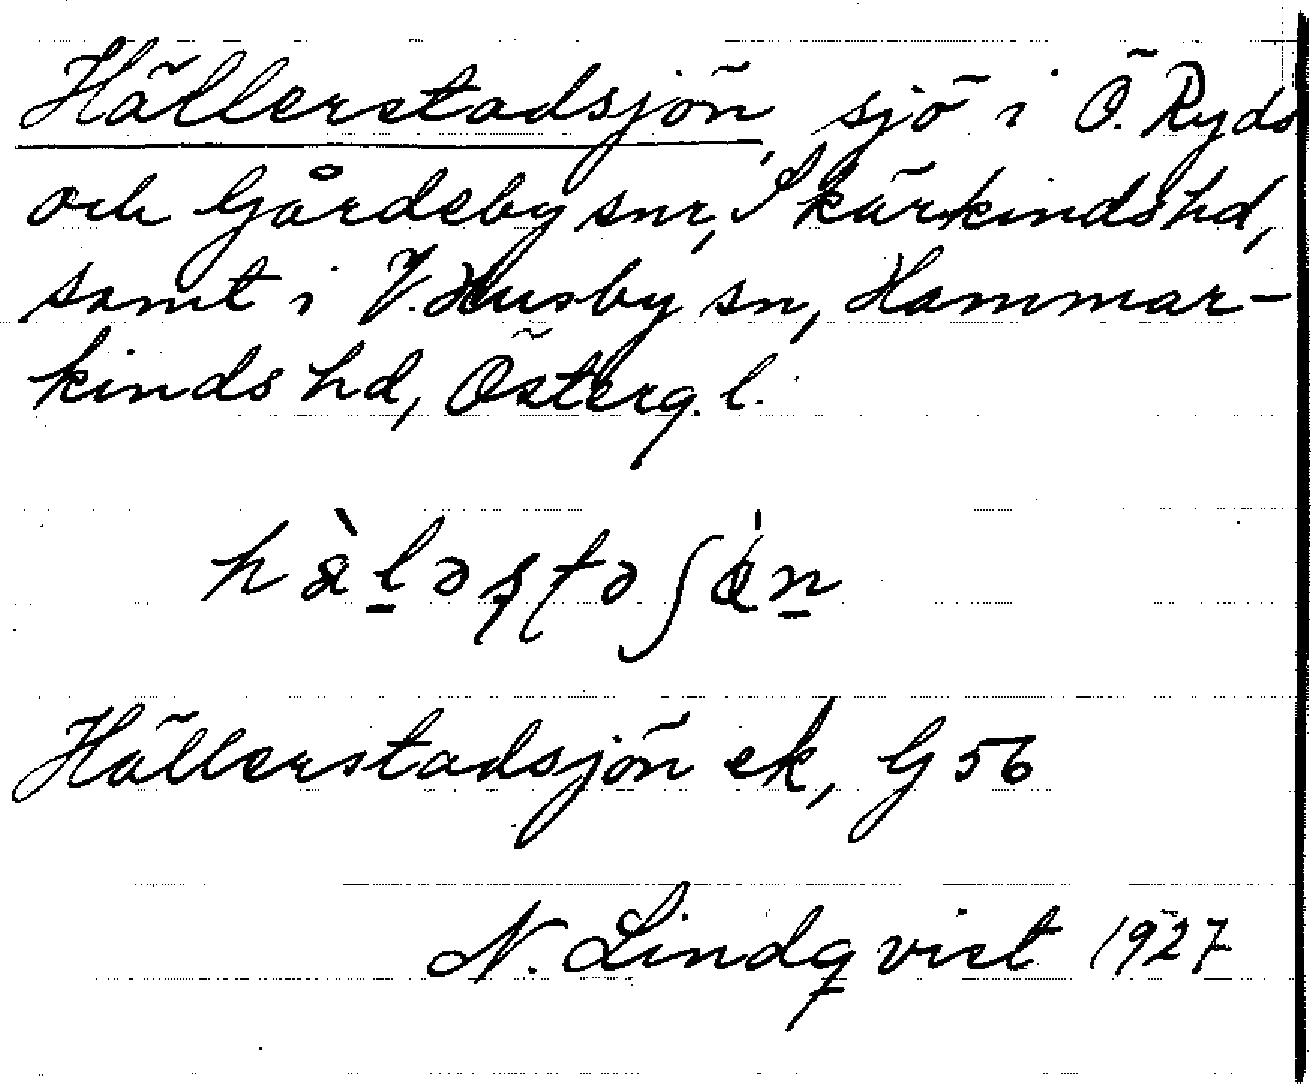 Hällerstadsjön, sjö i Ö. Ryds
och Gårdeby snr, Skärkinds hd,
samt i V. Husby sn, Hammar-
kinds hd, Österg. l.
Hällerstadsjön ek, G 56
N. Lindqvist 1927